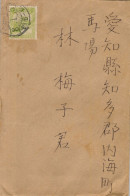 愛知縣知多郡内海町
馬場
林梅子君